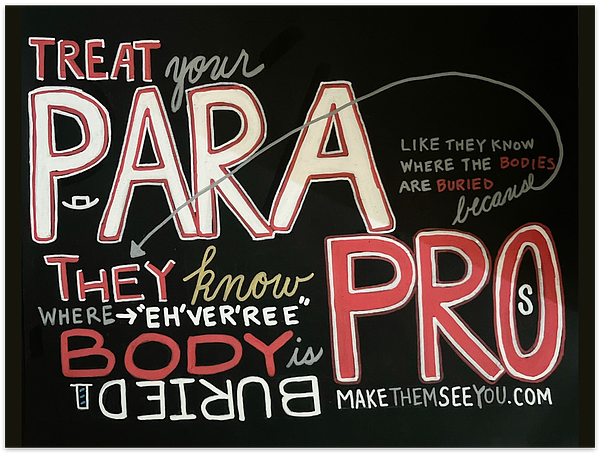 TREAT your
PARA
PROs
LIKE THEY KNOW
WHERE THE BODIES
ARE BURIED
because
THEY know
WHERE → "EH'VER'REE"
BODY is
BURIED
MAKETHEMSEEYOU.COM